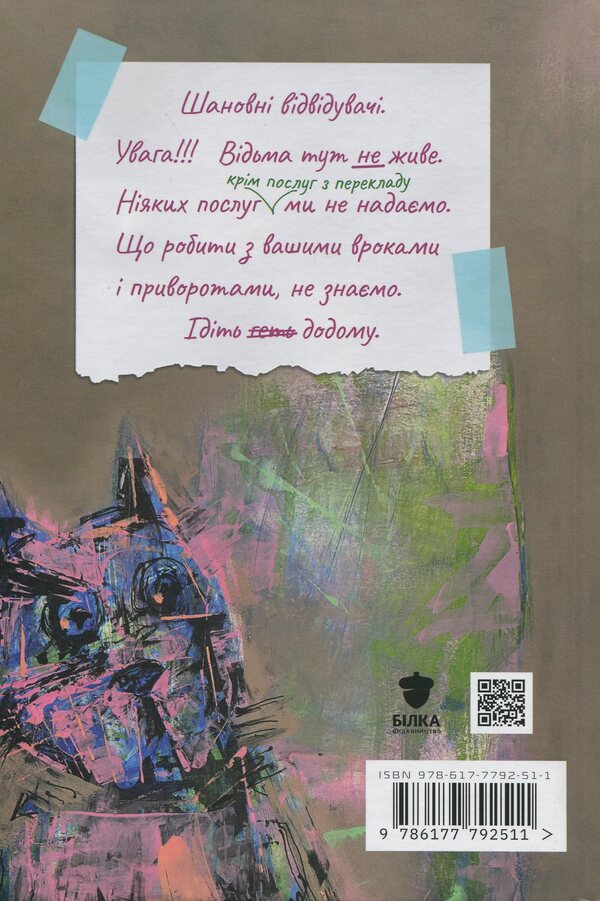 Шановні відвідувачі.
Увага!!! Відьма тут не живе.
крім послуг з перекладу
Ніяких послуг ми не надаємо.
Що робити з вашими вроками
і приворотами, не знаємо.
Ідіть геть додому.
БІЛКА
видавництво
ISBN 978-617-7792-51-1
9 786177 792511 >